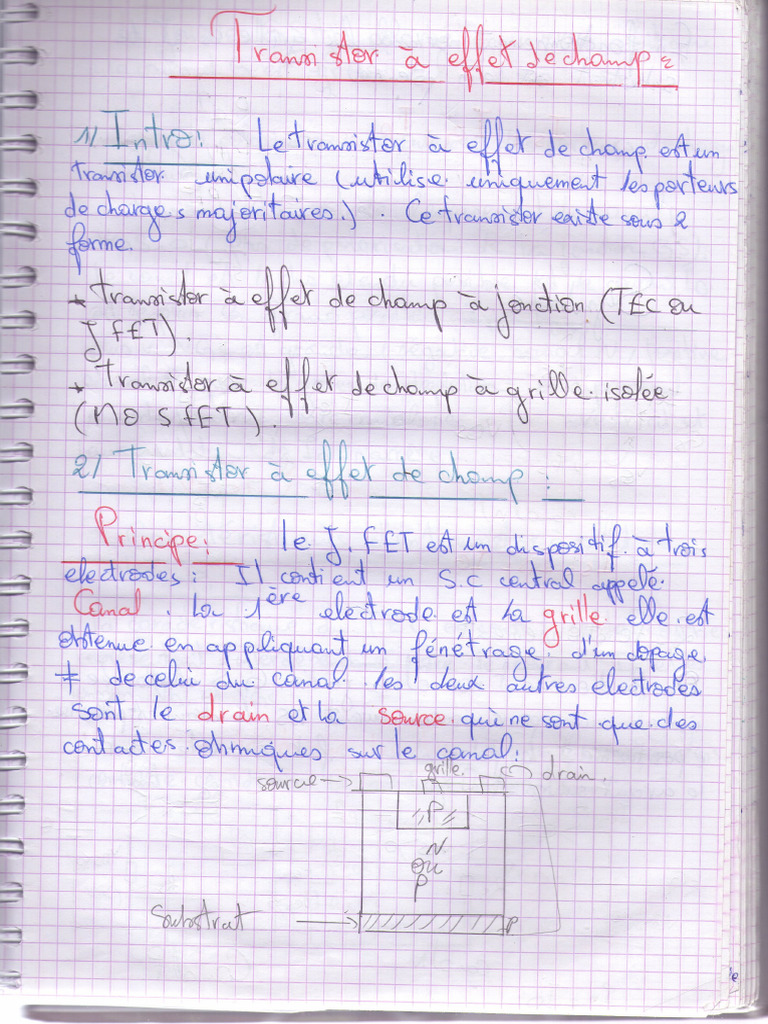 Transistor à effet de champ :
1/ Intro: Le transistor à effet de champ est un
transistor unipolaire (utilise uniquement les porteurs
de charges majoritaires.). Ce transistor existe sous 2
forme.
* transistor à effet de champ à jonction (TEC ou
J FET).
* Transistor à effet de champ à grille isolée
(MOSFET).
2/ Transistor à effet de champ :
Principe: le J.FET est un dispositif à trois
electrodes: Il contient un S.C central appelé
Canal. la 1ère electrode est la grille elle est
obtenue en appliquant un fénétrage d'un dopage
≠ de celui du canal. les deux autres electrodes
sont le drain et la source qui ne sont que des
contactes ohmiques sur le canal.
source grille drain.
P
N
ou
P
Substrat P